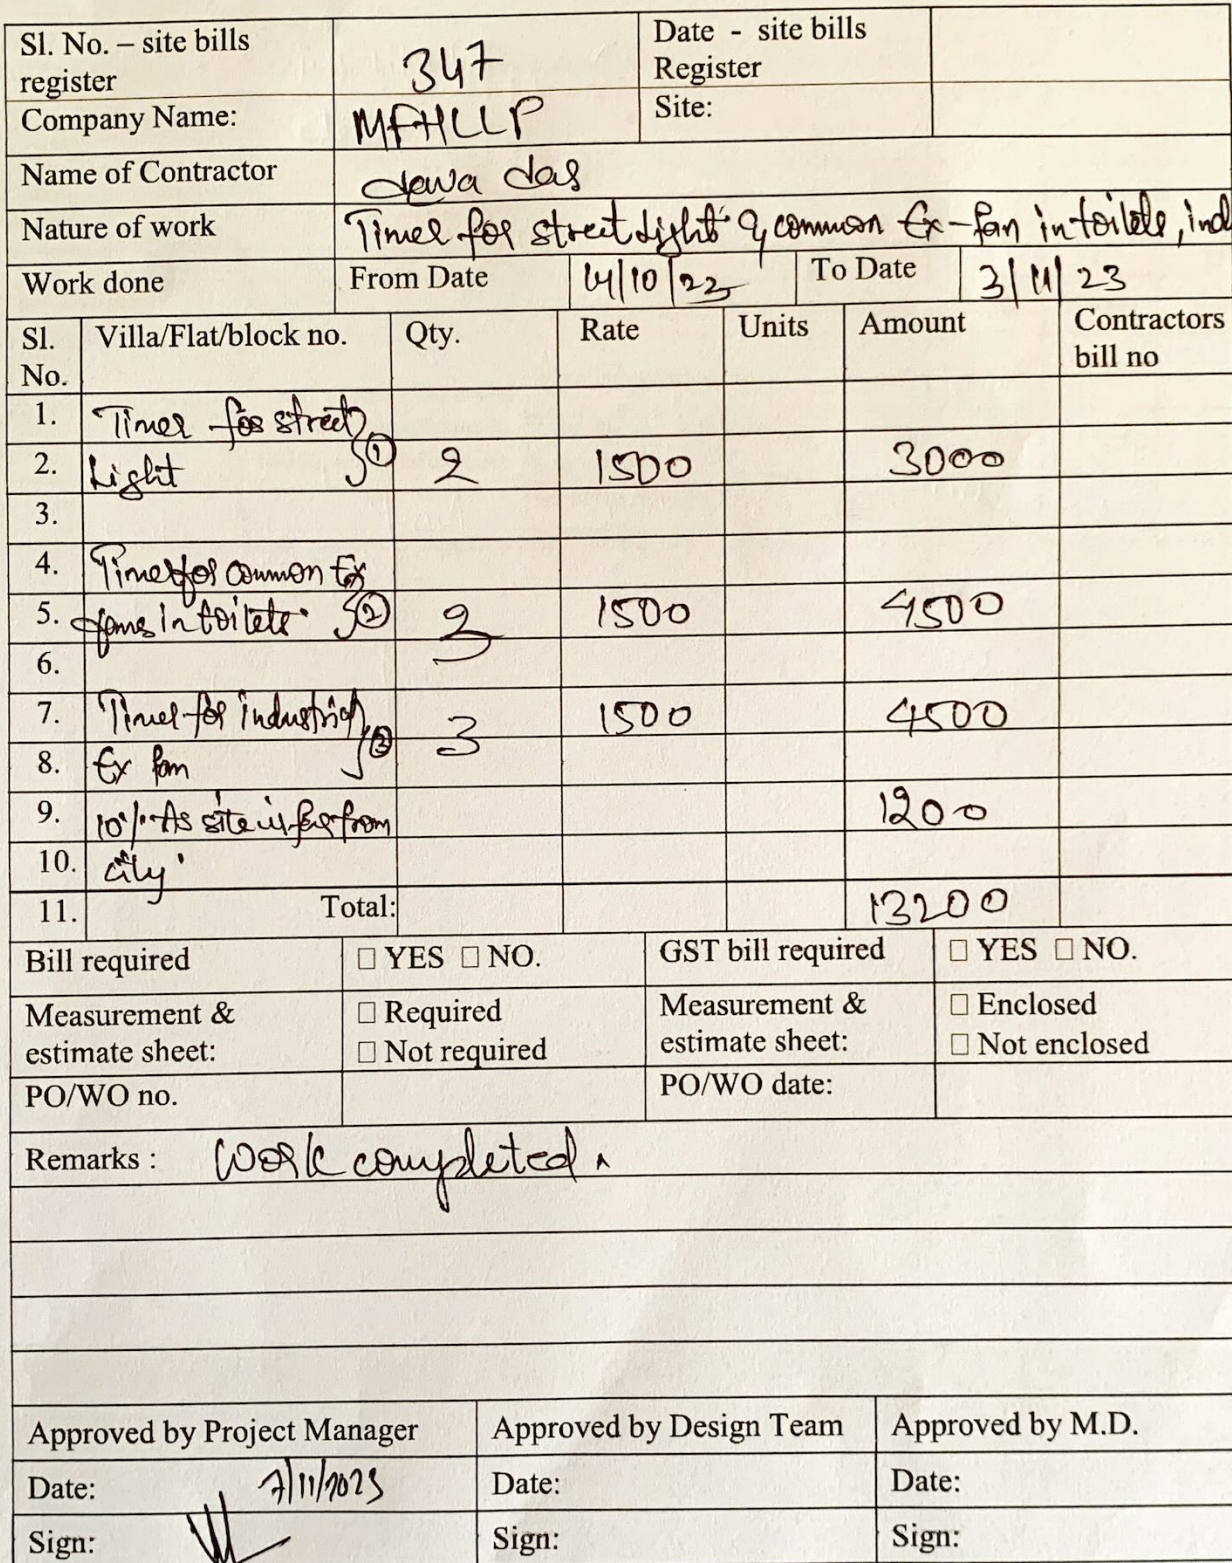 Sl. No. – site bills register 347 Date - site bills Register
Company Name: MFHLLP Site:
Name of Contractor dewa das
Nature of work Timer for street Light & common Ex-fan in toilets, ind
Work done From Date 14/10/23 To Date 3/11/23
Sl. No. Villa/Flat/block no. Qty. Rate Units Amount Contractors bill no
1. Timer for street
2. Light 1 2 1500 3000
3.
4. Timer for common Ex
5. fans in toilets. 2 3 1500 4500
6.
7. Timer for industrial 3 1500 4500
8. Ex fan 3
9. 10% As site is far from 1200
10. city
11. Total: 13200
Bill required □ YES □ NO. GST bill required □ YES □ NO.
Measurement & estimate sheet: □ Required □ Not required Measurement & estimate sheet: □ Enclosed □ Not enclosed
PO/WO no. PO/WO date:
Remarks : Work completed.
Approved by Project Manager Approved by Design Team Approved by M.D.
Date: 7/11/2023 Date: Date:
Sign: Sign: Sign: